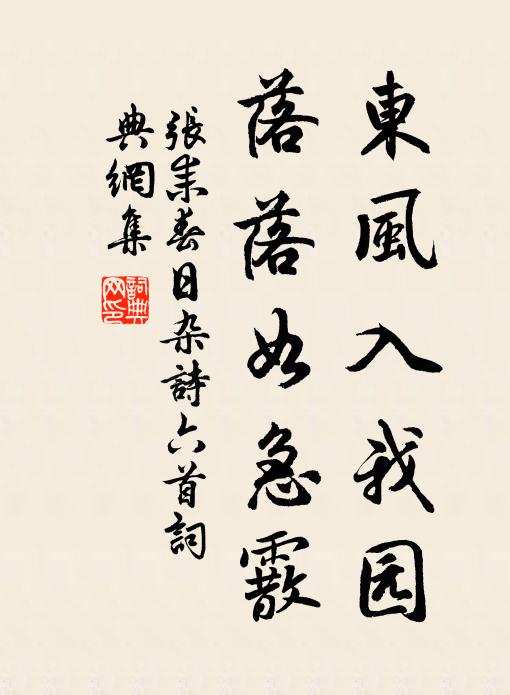 東風入我园
落落如急霰
張耒春日杂詩六首詞
典網集
詞典网印